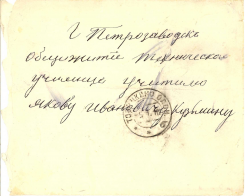 г Петрозаводскъ
общежитіе технического
училища учителю
Якову Ивановичу Кузьмину